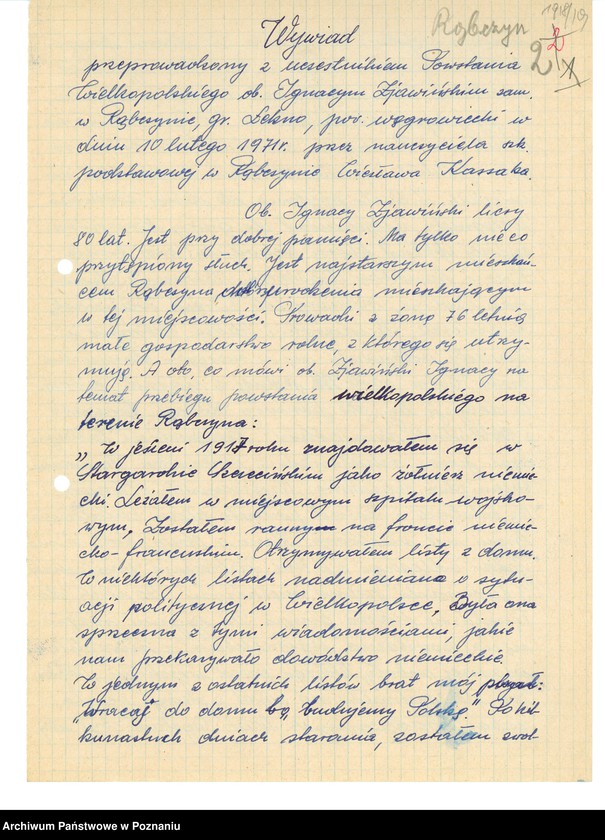 Rąbczyn
1918/19
2
2
X
Wywiad
przeprowadzony z uczestnikiem Powstania
Wielkopolskiego ob. Ignacym Zjawińskim zam.
w Rąbczynie, gr. Lekno, pow. wągrowiecki w
dniu 10 lutego 1971r. przez nauczyciela szk.
podstawowej w Rąbczynie Wiesława Kassaka.
Ob. Ignacy Zjawiński liczy
80 lat. Jest przy dobrej pamięci. Ma tylko nieco
przytępiony słuch. Jest najstarszym mieszkań-
cem Rąbczyna urodzenia mieszkającym
w tej miejscowości. Prowadzi z żoną 76 letnią
małe gospodarstwo rolne, z którego się utrzy-
mują. A oto, co mówi ob. Zjawiński Ignacy na
temat przebiegu powstania wielkopolskiego na
terenie Rąbczyna:
„W jesieni 1917 roku znajdowałem się w
Stargardzie Szczecińskim jako żołnierz niemie-
cki. Leżałem w miejscowym szpitalu wojsko-
wym, Zostałem ranny na froncie niemie-
cko-francuskim. Otrzymywałem listy z domu.
W niektórych listach nadmieniano o sytu-
acji politycznej w Wielkopolsce, Była ona
sprzeczna z tymi wiadomościami, jakie
nam przekazywało dowództwo niemieckie.
W jednym z ostatnich listów brat mój pisał:
„Wracaj do domu bo, budujemy Polskę" Po kil-
kunastuch dniach starania, zostałem zwol-
Archiwum Państwowe w Poznaniu